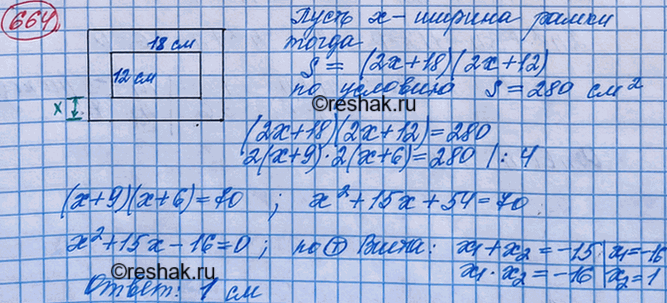 664
Пусть x - ширина рамки
18 см
тогда
12 см
S = (2x+18)(2x+12)
по условию S = 280 см²
x
©reshak.ru
(2x+18)(2x+12)=280
2(x+9)·2(x+6)=280 |: 4
(x+9)(x+6)=70 ; x²+15x+54=70
x²+15x-16=0 ; по Т Виета: x₁+x₂=-15 | x₁=-16
x₁·x₂=-16 | x₂=1
Ответ: 1 см
©reshak.ru
©reshak.ru